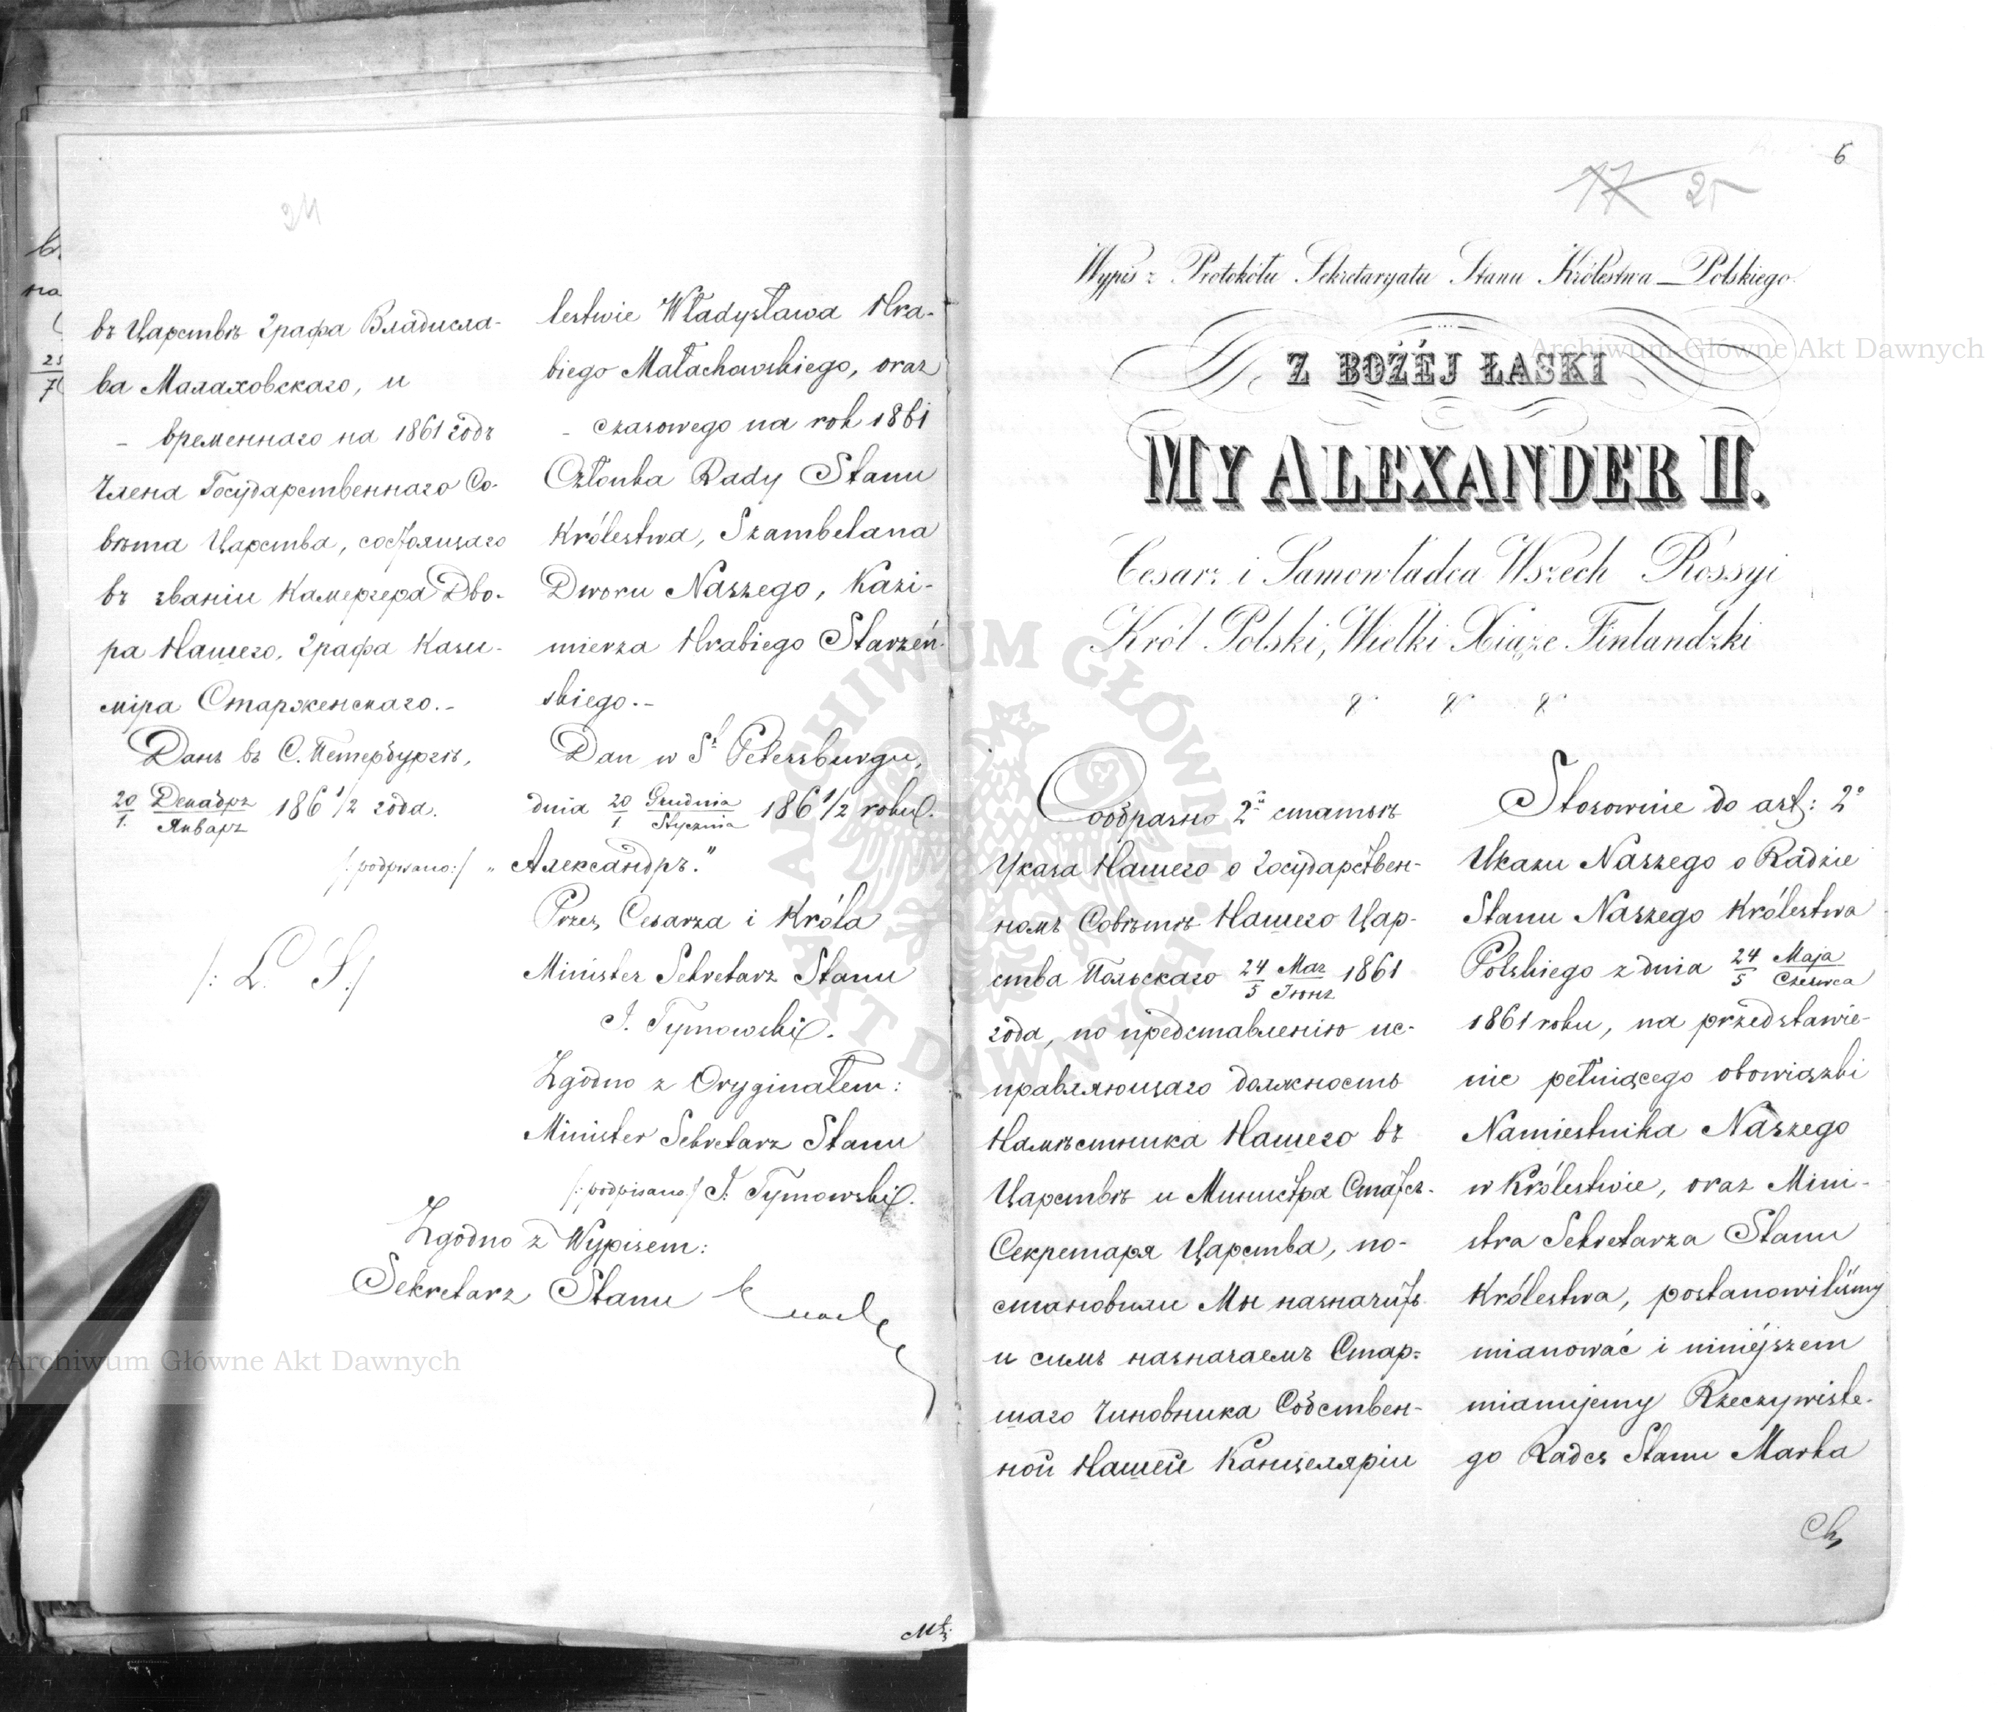 24
въ Царствѣ Графа Владисла-
ва Малаховскаго, и
- временнаго на 1861 годъ
Члена Государственнаго Со-
вѣта Царства, состоящаго
въ званіи Камергера Дво-
ра Нашего, Графа Кази-
міра Старженскаго.-
Данъ въ С. Петербургѣ,
20/1 Декабря/Января 186 1/2 года.
lestwie Władysława Hra-
biego Małachowskiego, oraz
- czasowego na rok 1861
Członka Rady Stanu
Królestwa, Szambelana
Dworu Naszego, Kazi-
mierza Hrabiego Starzeń-
skiego.-
Dan w St Petersburgu,
dnia 20/1 Grudnia/Stycznia 186 1/2 roku.
/:podpisano:/ „Александръ."
Przez Cesarza i Króla
Minister Sekretarz Stanu
J. Tymowski.
/: L. S. :/
Zgodno z Oryginałem:
Minister Sekretarz Stanu
/:podpisano:/ J. Tymowski.
Zgodno z Wypisem:
Sekretarz Stanu
6
17 25
Wypis z Protokółu Sekretaryatu Stanu Królestwa Polskiego.
Z BOŻÉJ ŁASKI
MY ALEXANDER II.
Cesarz i Samowładca Wszech Rossyi
Król Polski, Wielki Xiąże Finlandzki
Сообразно 2й статьѣ
Указа Нашего о Государствен-
номъ Совѣтѣ Нашего Цар-
ства Польскаго 24/5 Мая/Іюня 1861
года, по представленію ис-
правляющаго должность
Намѣстника Нашего въ
Царствѣ и Министра Статсъ-
Секретаря Царства, по-
становили Мы назначить
и симъ назначаемъ Стар-
шаго Чиновника Собствен-
ной Нашей Канцеляріи
Stosownie do art: 2º
Ukazu Naszego o Radzie
Stanu Naszego Królestwa
Polskiego z dnia 24/5 Maja/Czerwca
1861 roku, na przedstawie-
nie pełniącego obowiązki
Namiestnika Naszego
w Królestwie, oraz Mini-
stra Sekretarza Stanu
Królestwa, postanowiliśmy
mianować i niniéjszem
mianujemy Rzeczywiste-
go Radcę Stanu Marka
Archiwum Główne Akt Dawnych
Archiwum Główne Akt Dawnych
ARCHIWUM GŁÓWNE AKT DAWNYCH